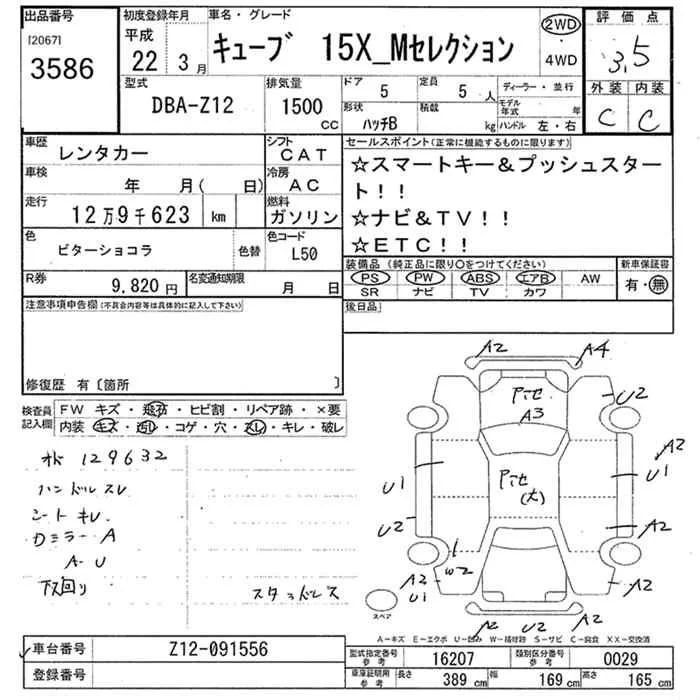 出品番号 初度登録年月 車名・グレード 評価点
[2067] 平成
3586 22年 3月 キューブ 15X_Mセレクション 2WD・4WD 3.5
型式 排気量 ドア 定員 ディーラー・並行 外装 内装
DBA-Z12 1500cc 5 5人 モデル年式 年 C C
形状 積載 kg ハンドル 左・右
ハッチB
車歴 レンタカー シフト CAT セールスポイント(正常に機能するものに限ります)
車検 年 月( 日) 冷房 AC ☆スマートキー&プッシュスタート!!
走行 12万9千623 km 燃料 ガソリン ☆ナビ&TV!!
色 ビターショコラ 色替 色コード L50 ☆ETC!!
R券 9,820円 名変通知期限 月 日 装備品(純正品に限り○をつけてください) 新車保証書
PS PW ABS エアB AW 有・無
SR ナビ TV カワ
注意事項申告欄(不具合内容等は具体的に記入して下さい) 後日品
修復歴 有〔箇所 〕
検査員記入欄 FW キズ・飛石・ヒビ割・リペア跡・×要
内装 キズ・汚レ・コゲ・穴・スレ・キレ・破レ
オド 129632
ハンドルスレ
シートキレ
Dミラー A
A-U
下回り
スタッドレス
A2 A4
Pテヒ U2
A3
U1 Pテヒ(大) A2
U1
U2 A2
W2
A2
U1 A2
スペア A2 U2 A2
A-キズ E-エクボ U-凹み W-補修跡 S-サビ C-腐食 XX-交換済
車台番号 Z12-091556 型式指定番号参考 16207 類別区分番号参考 0029
登録番号 車庫証明用参考 長さ 389 cm 幅 169 cm 高さ 165 cm